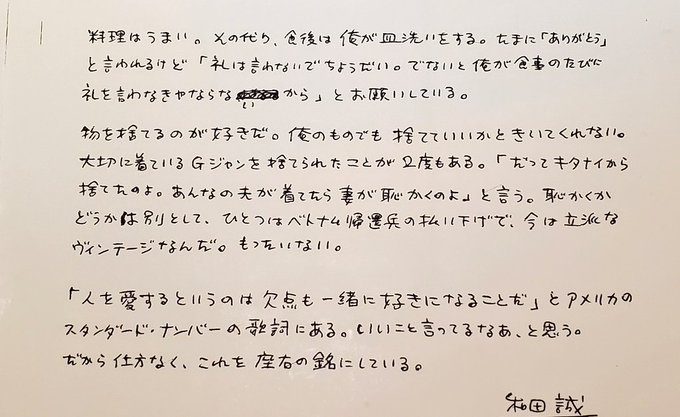 料理はうまい。その代り、食後は俺が皿洗いをする。たまに「ありがとう」
と言われるけど「礼は言わないでちょうだい。でないと俺が食事のたびに
礼を言わなきゃならないから」とお願いしている。
物を捨てるのが好きだ。俺のものでも捨てていいかときいてくれない。
大切に着ているGジャンを捨てられたことが2度もある。「だってキタナイから
捨てたのよ。あんなの夫が着てたら妻が恥かくのよ」と言う。恥かくか
どうかは別として、ひとつはベトナム帰還兵の払い下げで、今は立派な
ヴィンテージなんだ。もったいない。
「人を愛するというのは欠点も一緒に好きになることだ」とアメリカの
スタンダード・ナンバーの歌詞にある。いいこと言ってるなあ、と思う。
だから仕方なく、これを座右の銘にしている。
和田誠